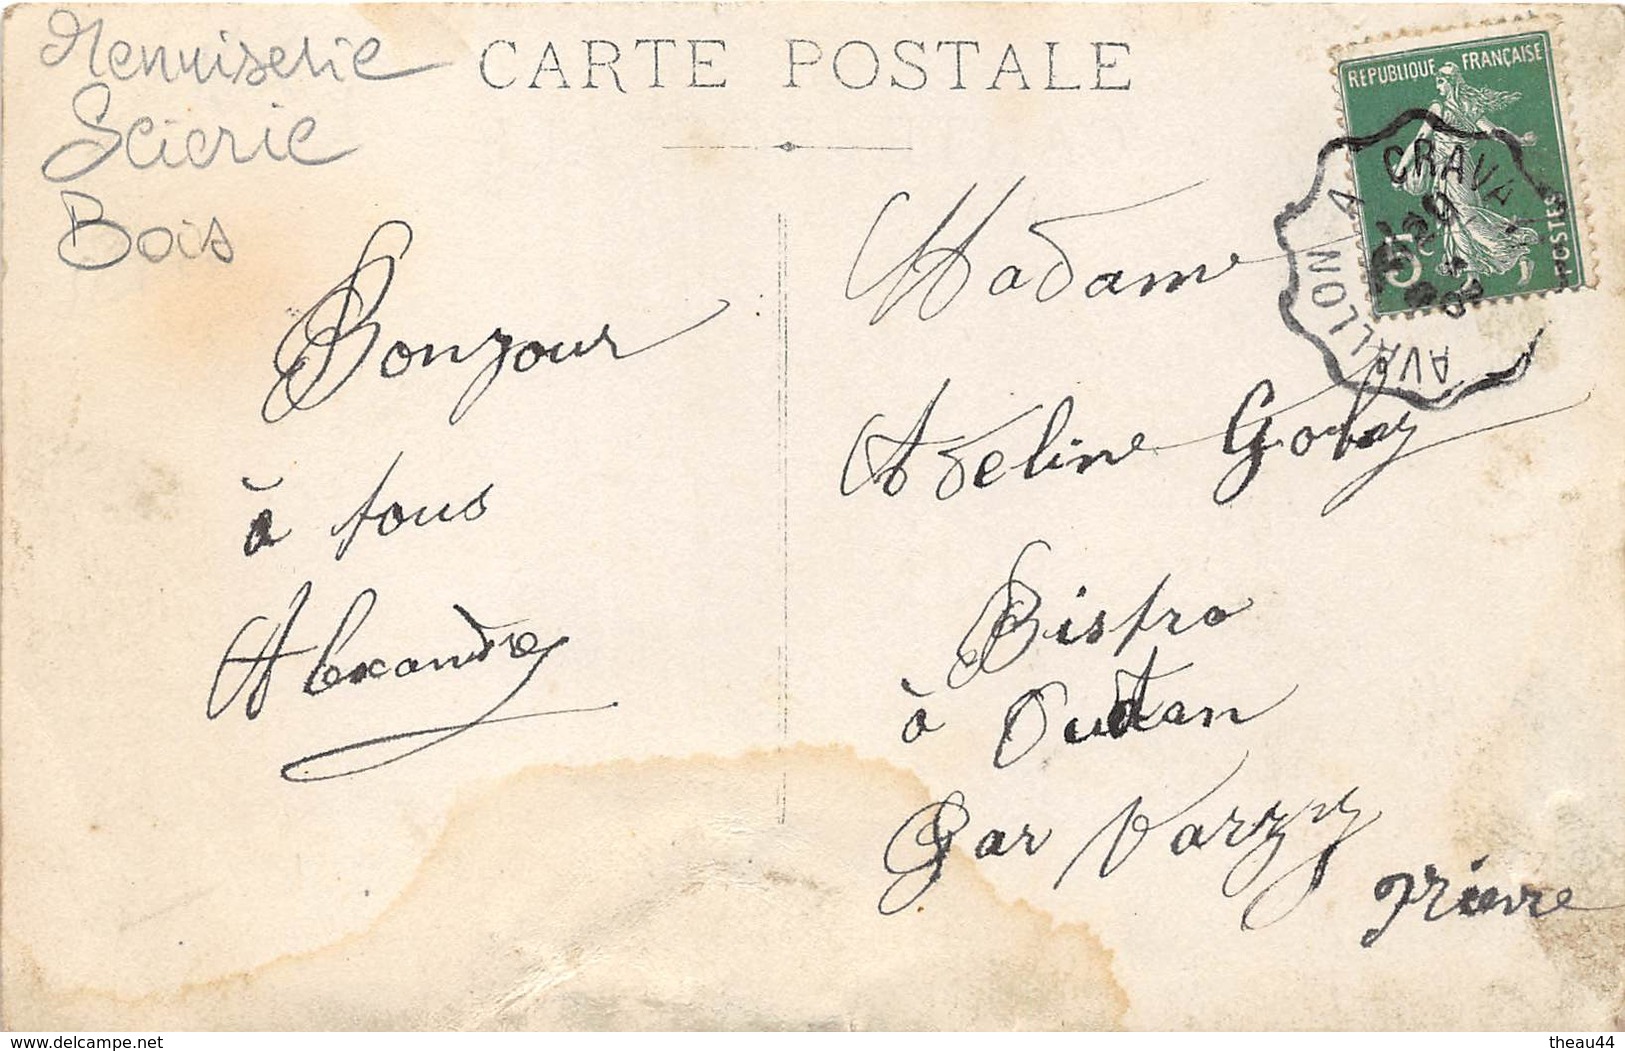 Menuiserie
Scierie
Bois
CARTE POSTALE
REPUBLIQUE FRANÇAISE
POSTES
5
AVALLON A CRAVA
Bonjour
à tous
Alexandre
Madame
Adeline Goby
Bistro
à Oudan
Par Varzy
Nièvre
www.delcampe.net
theau44